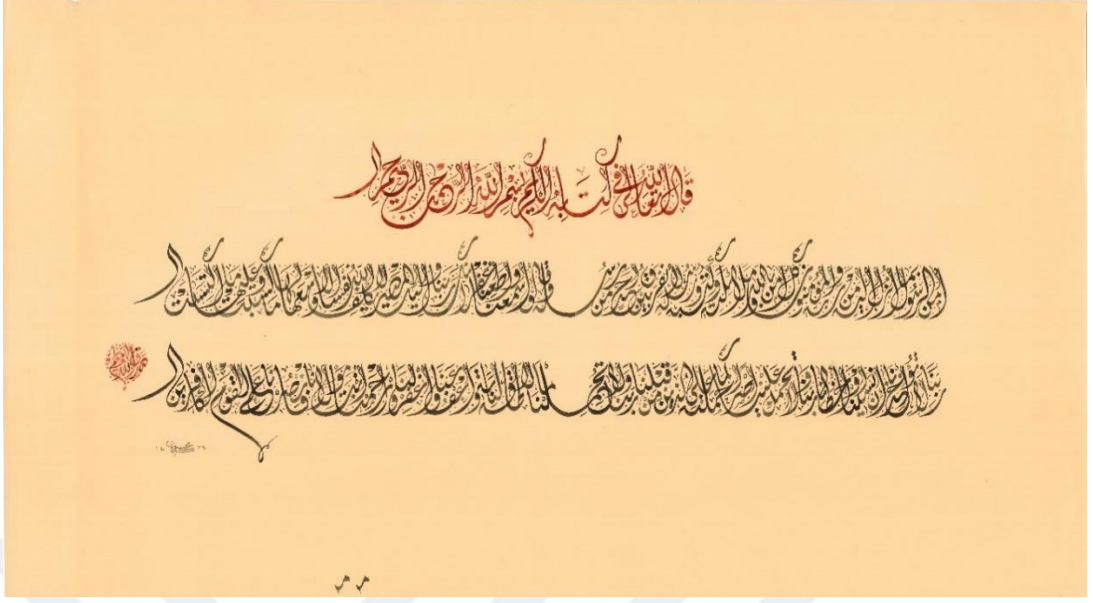 قال الله تعالى في كتابه الكريم بسم الله الرحمن الرحيم
آمن الرسول بما أنزل إليه من ربه والمؤمنون كل آمن بالله وملائكته وكتبه ورسله لا نفرق بين أحد من رسله وقالوا سمعنا وأطعنا غفرانك ربنا وإليك المصير لا يكلف الله نفسا إلا وسعها لها ما كسبت وعليها ما اكتسبت
ربنا لا تؤاخذنا إن نسينا أو أخطأنا ربنا ولا تحمل علينا إصرا كما حملته على الذين من قبلنا ربنا ولا تحملنا ما لا طاقة لنا به واعف عنا واغفر لنا وارحمنا أنت مولانا فانصرنا على القوم الكافرين